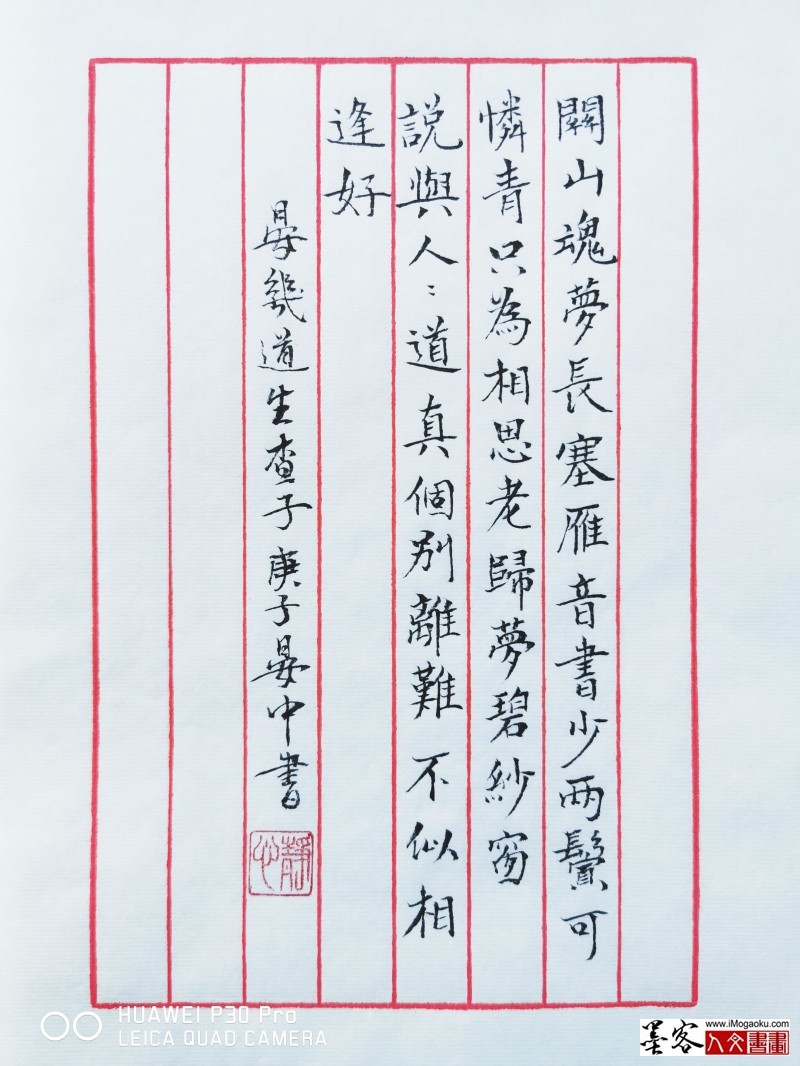 關山魂夢長塞雁音書少兩鬢可
憐青只為相思老歸夢碧紗窗
說與人:道真個別離難不似相
逢好
晏幾道生查子庚子晏中書
靜心
HUAWEI P30 Pro
LEICA QUAD CAMERA
墨客
www.iMogaoku.com
人文書畫